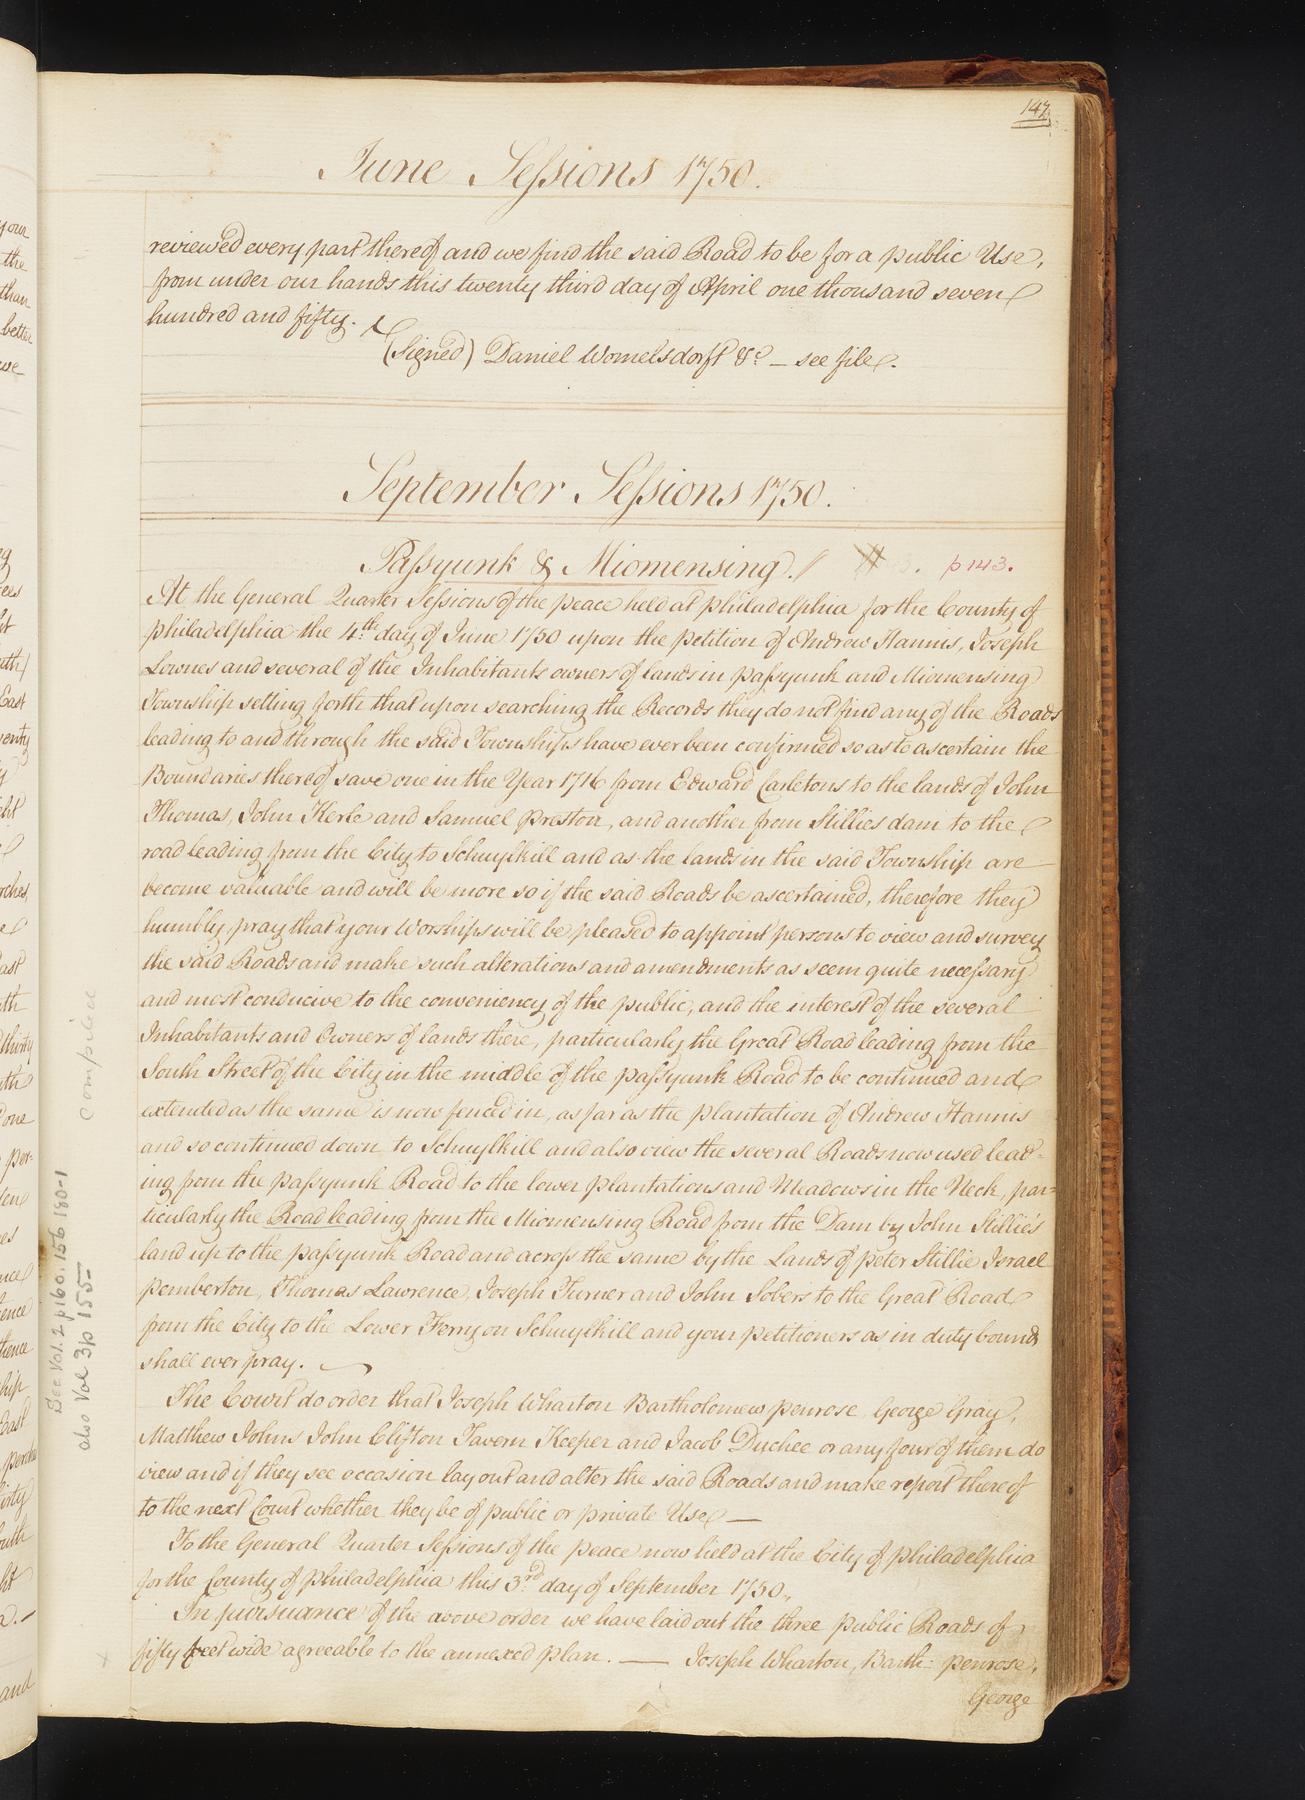 147
June Sessions 1750.
reviewed every part thereof and we find the said Road to be for a public Use,
from under our hands this twenty third day of April one thousand seven
hundred and fifty.
(Signed) Daniel Womelsdorft &c. — see file.
September Sessions 1750.
Passyunk & Miomensing. // p 143.
At the General Quarter Sessions of the peace held at philadelphia for the County of
philadelphia the 4th. day of June 1750 upon the petition of Andrew Hannis, Joseph
Lownes and several of the Inhabitants owners of lands in passyunk and Miomensing
Township setting forth that upon searching the Records they do not find any of the Roads
leading to and through the said Townships have ever been confirmed so as to ascertain the
Boundaries thereof save one in the Year 1716 from Edward Carletons to the lands of John
Thomas, John Kerle and Samuel preston, and another from Stillies dam to the
road leading from the City to Schuylkill and as the lands in the said Township are
become valuable and will be more so if the said Roads be ascertained, therefore they
humbly pray that your Worships will be pleased to appoint persons to view and survey
the said Roads and make such alterations and amendments as seem quite necessary
and most conducive to the conveniency of the public, and the interest of the several
Inhabitants and Owners of lands there, particularly the Great Road leading from the
South Street of the City in the middle of the passyunk Road to be continued and
extended as the same is now fenced in, as far as the plantation of Andrew Hannis
and so continued down to Schuylkill and also view the several Roads now used lead-
ing from the passyunk Road to the lower plantations and Meadows in the Neck, par=
ticularly the Road leading from the Miomensing Road from the Dam by John Stillie's
land up to the passyunk Road and across the same by the Lands of peter Stillie Israel
pemberton, Thomas Lawrence, Joseph Turner and John Sobers to the Great Road
from the City to the Lower Ferry on Schuylkill and your petitioners as in duty bound
shall ever pray.
The Court do order that Joseph Wharton Bartholomew penrose George Gray,
Matthew Johns John Clifton Tavern Keeper and Jacob Duchee or any four of them do
view and if they see occasion lay out and alter the said Roads and make report thereof
to the next Court whether they be of public or private Use —
To the General Quarter Sessions of the peace now held at the City of philadelphia
for the County of philadelphia this 3rd day of September 1750.,
In pursuance of the above order we have laid out the three public Roads of
fifty feet wide agreeable to the annexed plan. — Joseph Wharton, Barth: penrose,
George
compiled
See Vol. 2 p 160. 156 180-1
also Vol 3 p 155